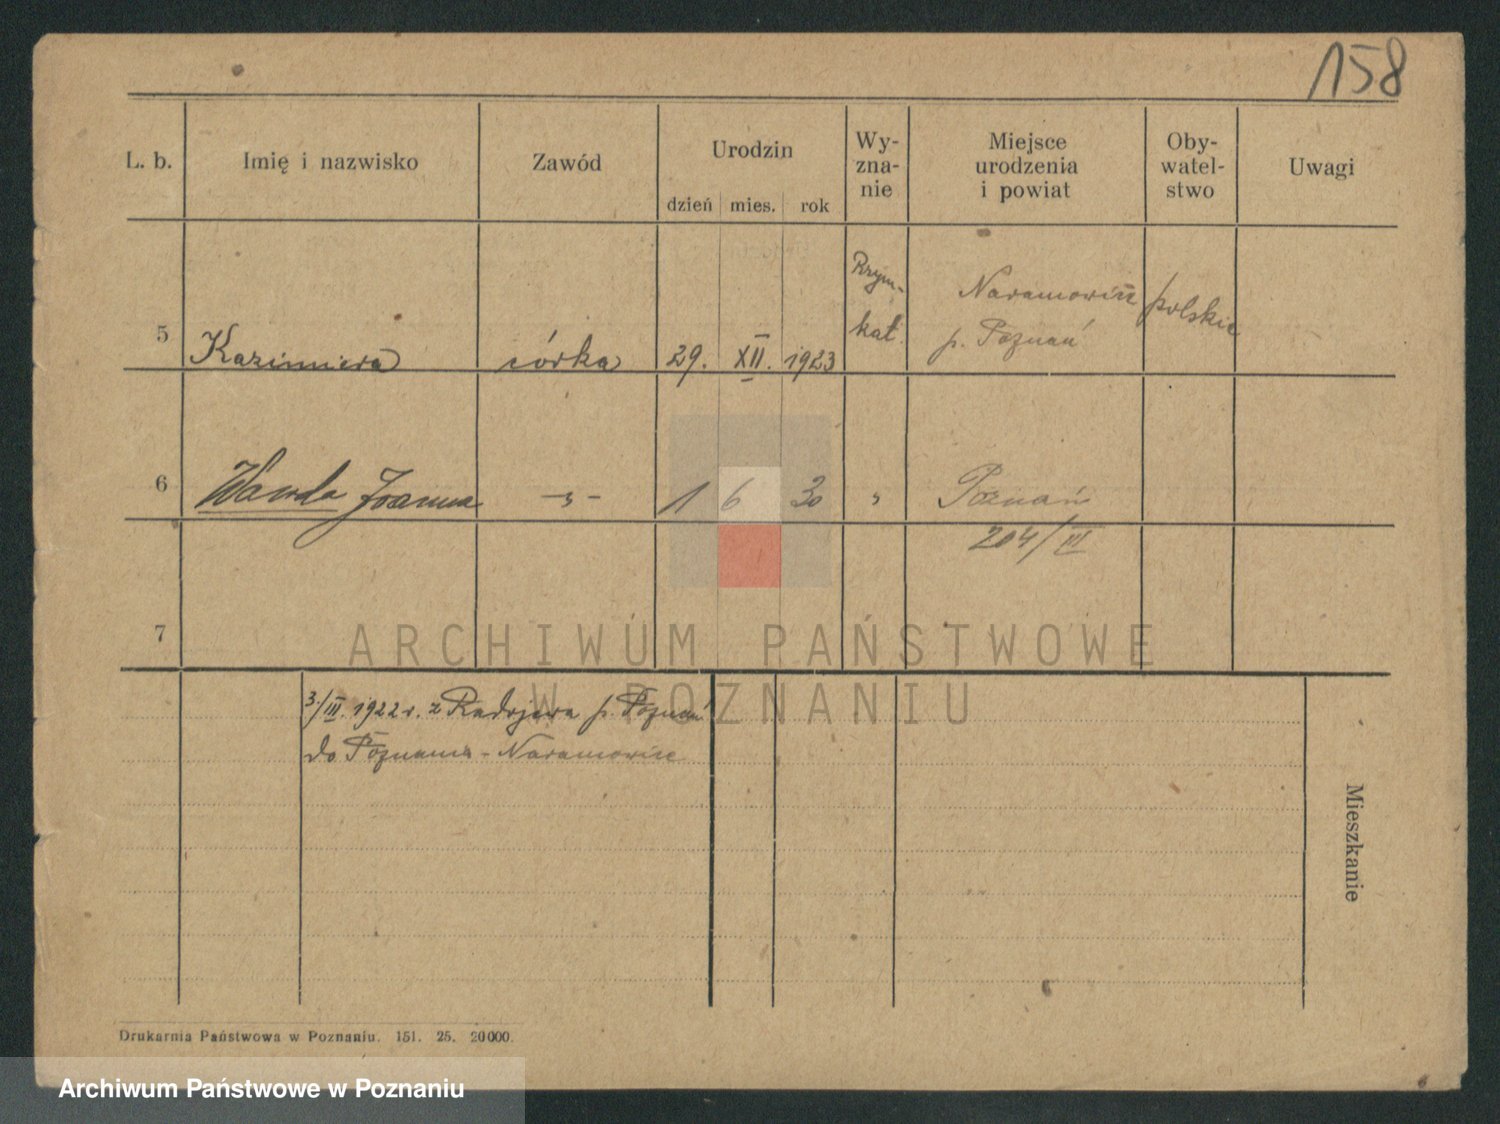 158
L. b. Imię i nazwisko Zawód Urodzin dzień mies. rok Wy-zna-nie Miejsce urodzenia i powiat Oby-watel-stwo Uwagi
5 Kazimiera córka 29. XII. 1923 Rzym.-kat. Naramowice p. Poznań polskie
6 Wanda Joanna —„— 1 6 30 „ Poznań
204/III
7
3/III. 1922 r. z Radojewa p. Poznań
do Poznania - Naramowice
Mieszkanie
Drukarnia Państwowa w Poznaniu. 151. 25. 20000.
ARCHIWUM PAŃSTWOWE
W POZNANIU
Archiwum Państwowe w Poznaniu